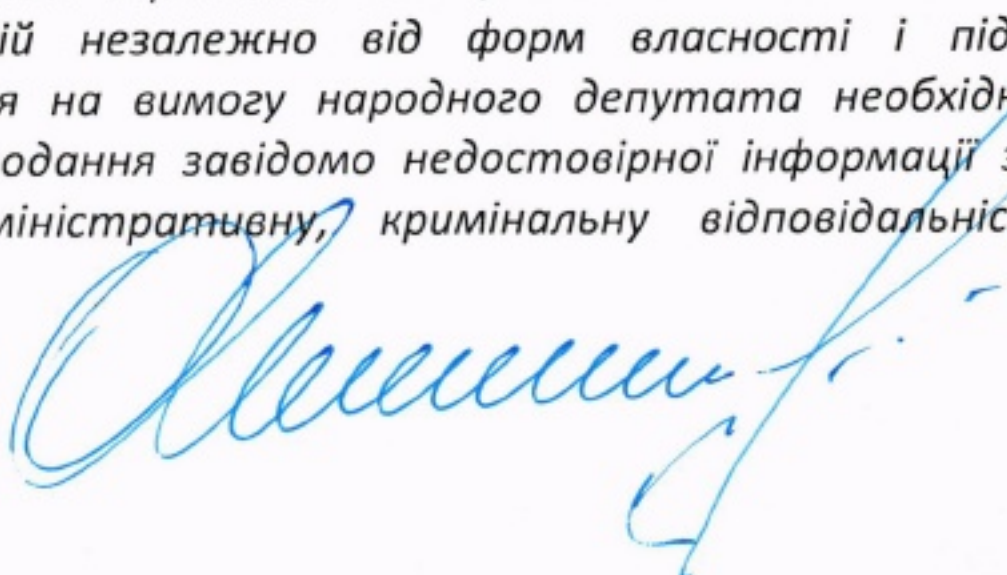 ій незалежно від форм власності і під
я на вимогу народного депутата необхідн
одання завідомо недостовірної інформації з
міністративну, кримінальну відповідальніс